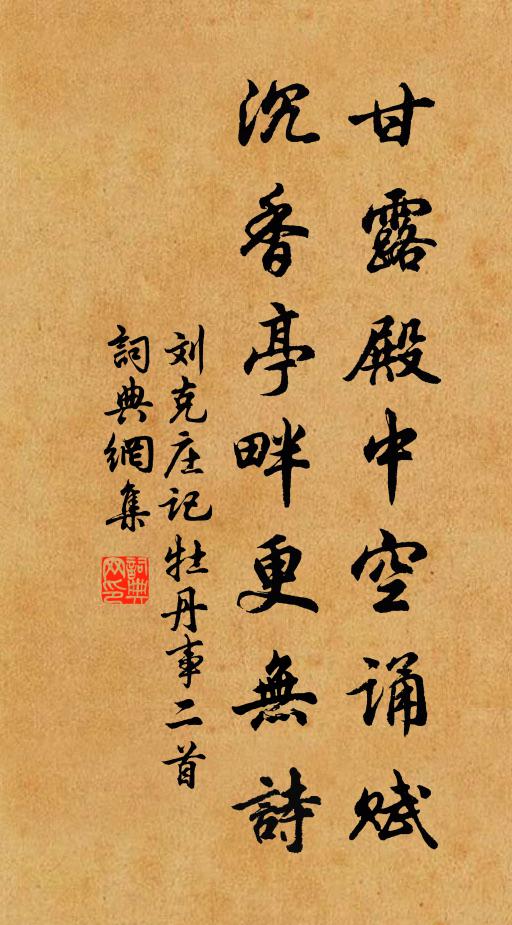 甘露殿中空诵赋
沉香亭畔更無詩
刘克庄记牡丹事二首
詞典網集
詞典网印